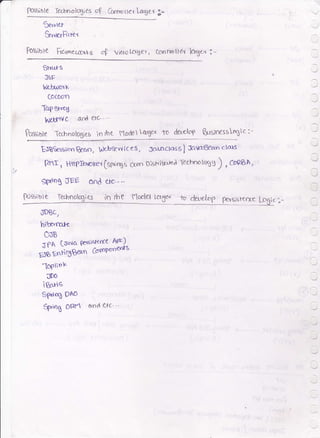 Possible Technologies of Controller Layer :-
Servlet
Servlet Filter
Possible Frameworks of view layer, controller layer :-
Struts
JSF
Webwork
Cocoon
Tapestry
WebMVC and etc...
Possible Technologies in the Model Layer to develop Business Logic :-
EJB Session Bean, Webservices, Java class / Java Bean class
RMI, HttpInvoker (Spring's own Distributed Technology), CORBA,
Spring JEE and etc...
Possible Technologies in the Model Layer to develop persistence Logic :-
JDBC,
hibernate
OJB
JPA (Java Persistence API)
EJB Entity Bean Components
Toplink
JDO
iBatis
Spring DAO
Spring ORM and etc...